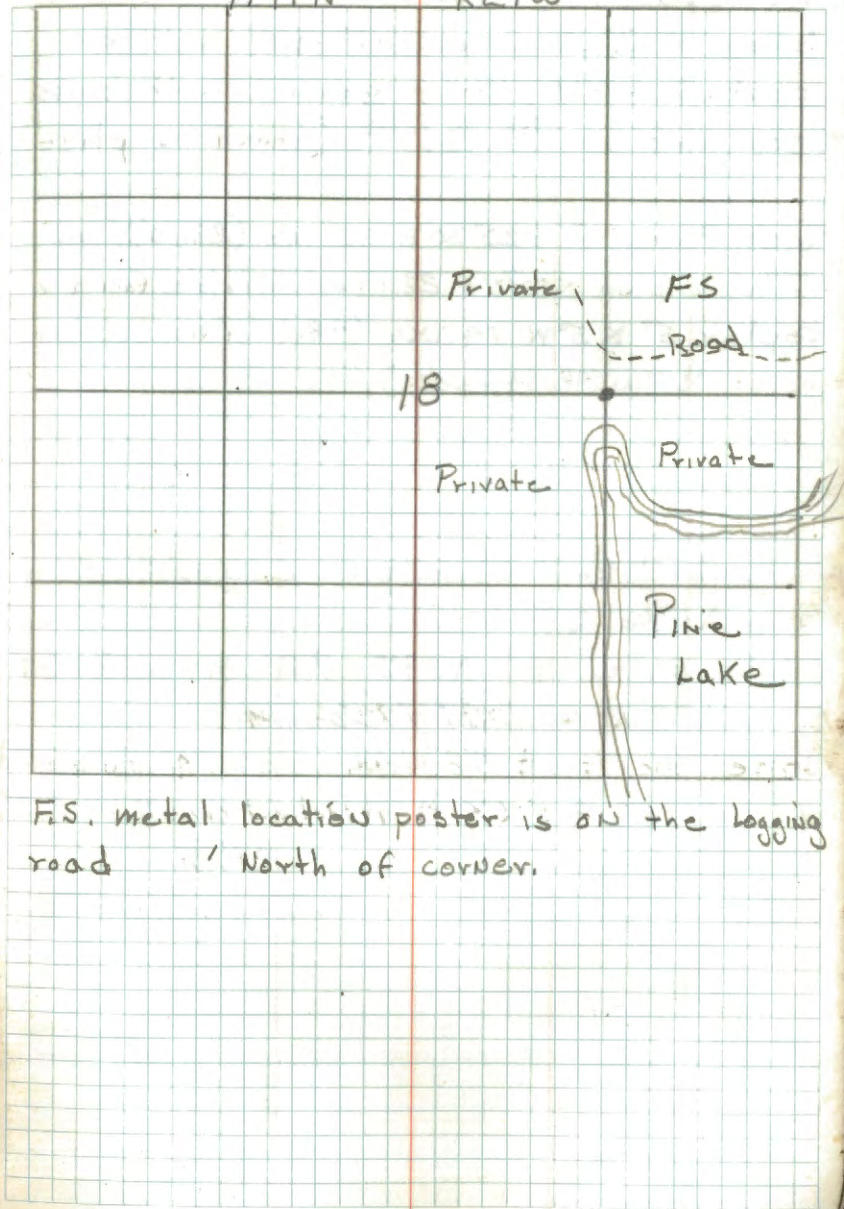 Private
FS
Road
18
Private
Private
Pine
Lake
F.S. metal location poster is on the logging
road ' North of corner.